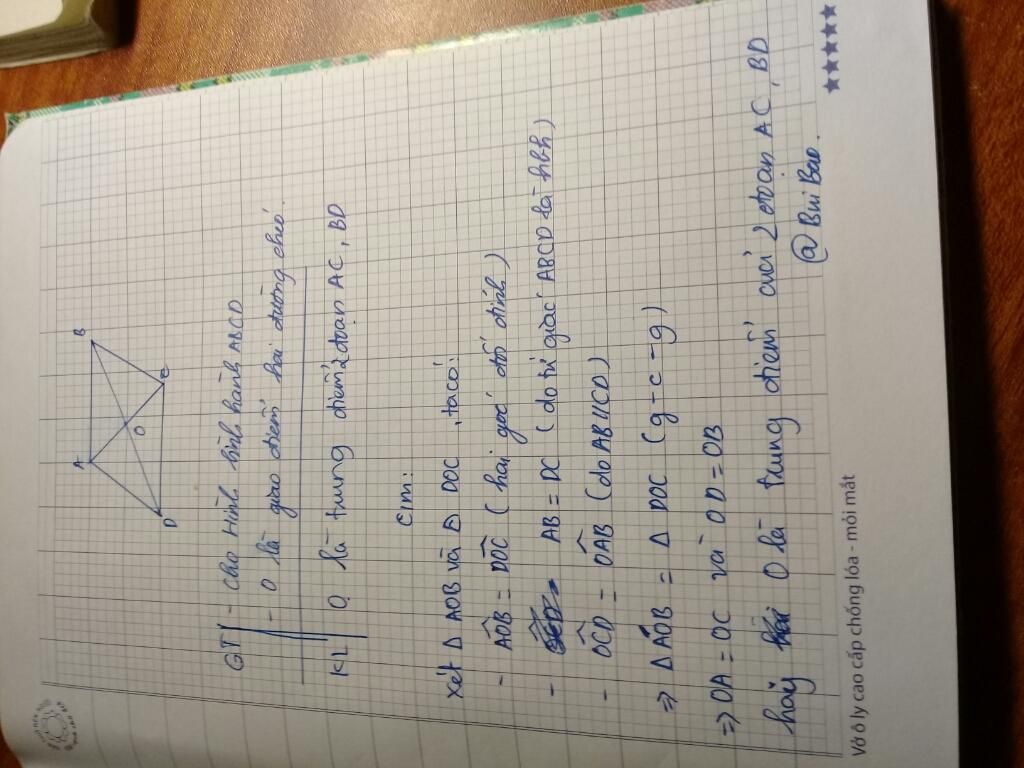 A B
O
D C
GT - Cho Hình bình hành ABCD
- O là giao điểm hai đường chéo.
KL O là trung điểm 2 đoạn AC, BD
CM:
Xét Δ AOB và Δ DOC, ta có:
- AÔB = DÔC (hai góc đối đỉnh)
- AB = DC (do tứ giác ABCD là hbh)
- OĈD = OÂB (do AB//CD)
⇒ Δ AOB = Δ DOC (g-c-g)
⇒ OA = OC và OD = OB
hay O là trung điểm của 2 đoạn AC, BD
@Bui Bao.
Vở ô ly cao cấp chống lóa - mỏi mắt